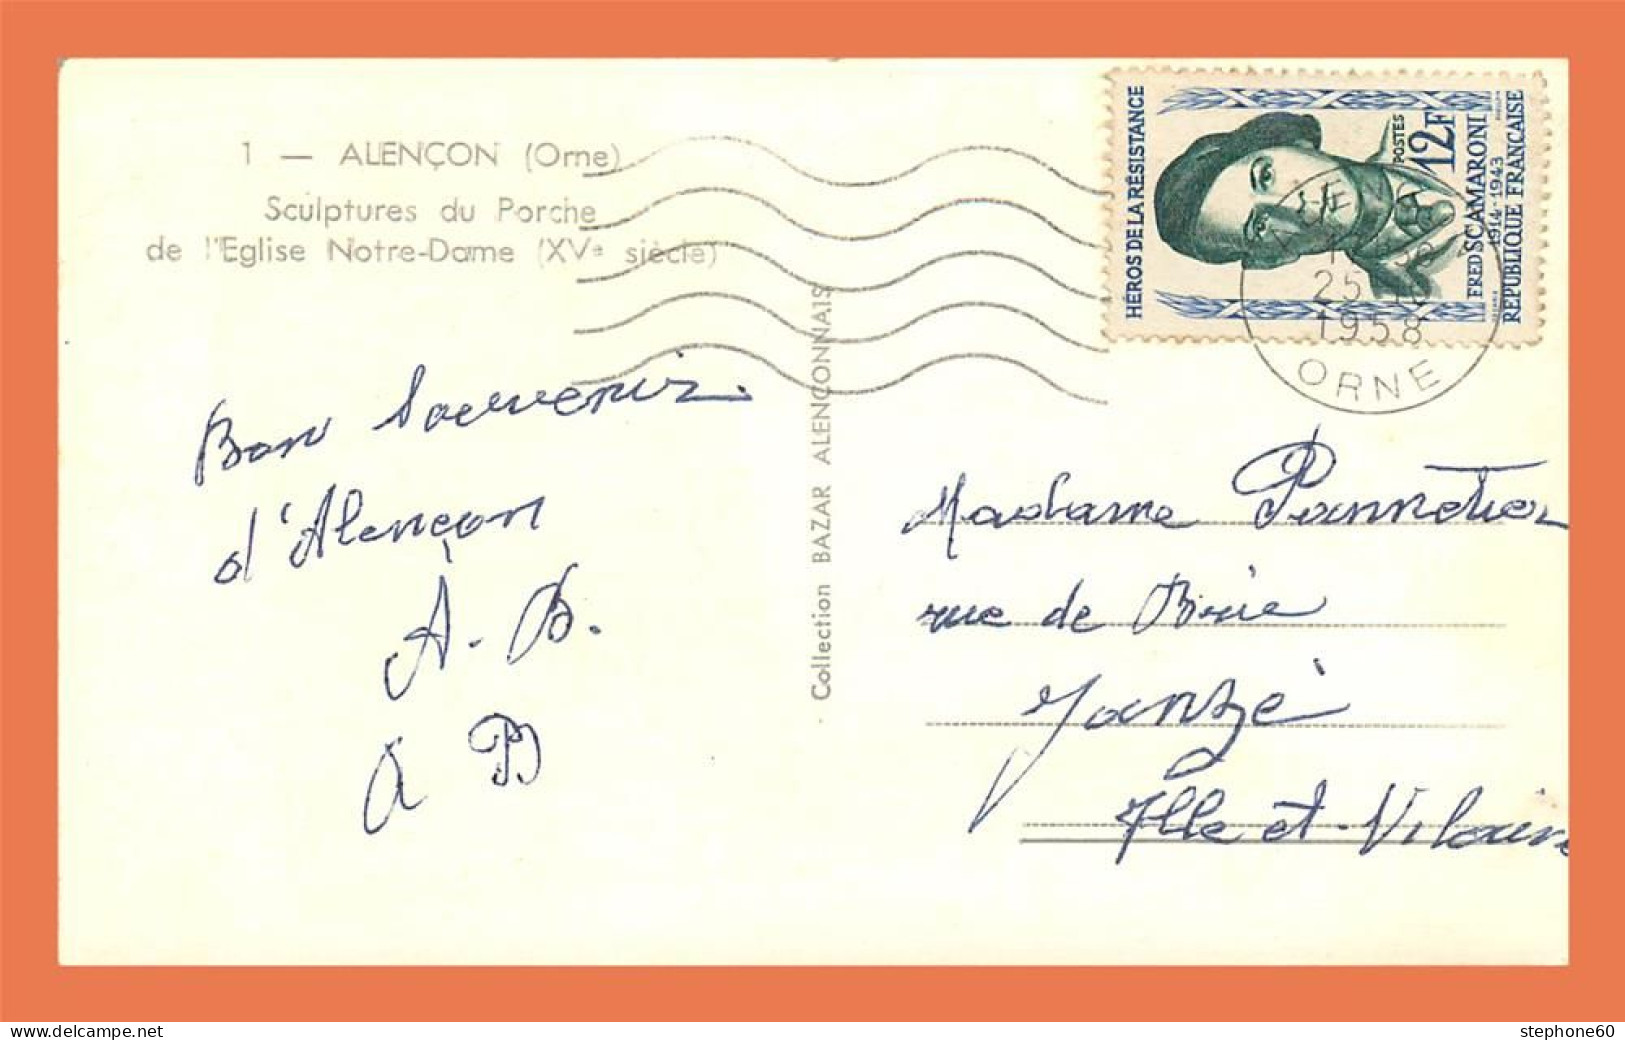 1 — ALENÇON (Orne)
Sculptures du Porche
de l'Eglise Notre-Dame (XVe siècle)
HÉROS DE LA RÉSISTANCE
POSTES
12F
FRED SCAMARONI
1914-1943
RÉPUBLIQUE FRANÇAISE
25
1958
ORNE
Bon souvenir
d'Alençon
A. B.
A B
Collection BAZAR ALENÇONNAIS
Madame Pannetier
rue de Brie
Janzé
Ille et-Vilaine
www.delcampe.net
stephone60